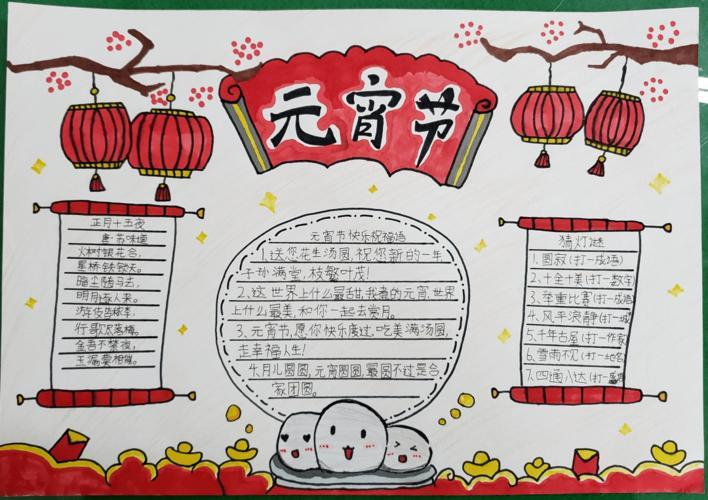 元宵节
正月十五夜
唐·苏味道
火树银花合,
星桥铁锁天。
暗尘随马去,
明月逐人来。
游伎皆秾李,
行歌尽落梅。
金吾不禁夜,
玉漏莫相催。
元宵节快乐祝福语
1、送您花生汤圆,祝您新的一年
子孙满堂,枝繁叶茂!
2、这世界上什么最甜,我煮的元宵,世界
上什么最美,和你一起去赏月。
3、元宵节,愿你快乐度过,吃美满汤圆,
走幸福人生!
4、月儿圆圆,元宵圆圆,最圆不过是合
家团圆。
猜灯谜
1、圆寂(打一成语)
2、十全十美(打一数字)
3、举重比赛(打一成语)
4、风平浪静(打一城
5、千年古屋(打一作家
6、雪雨不见(打一地名
7、四通八达(打一